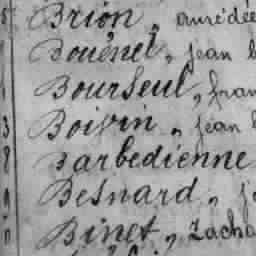 Brion, auré dée
Bouénel, jean b
Bourseul, fran
Boivin, jean b
Barbedienne
Besnard, j
Binet, Zacha